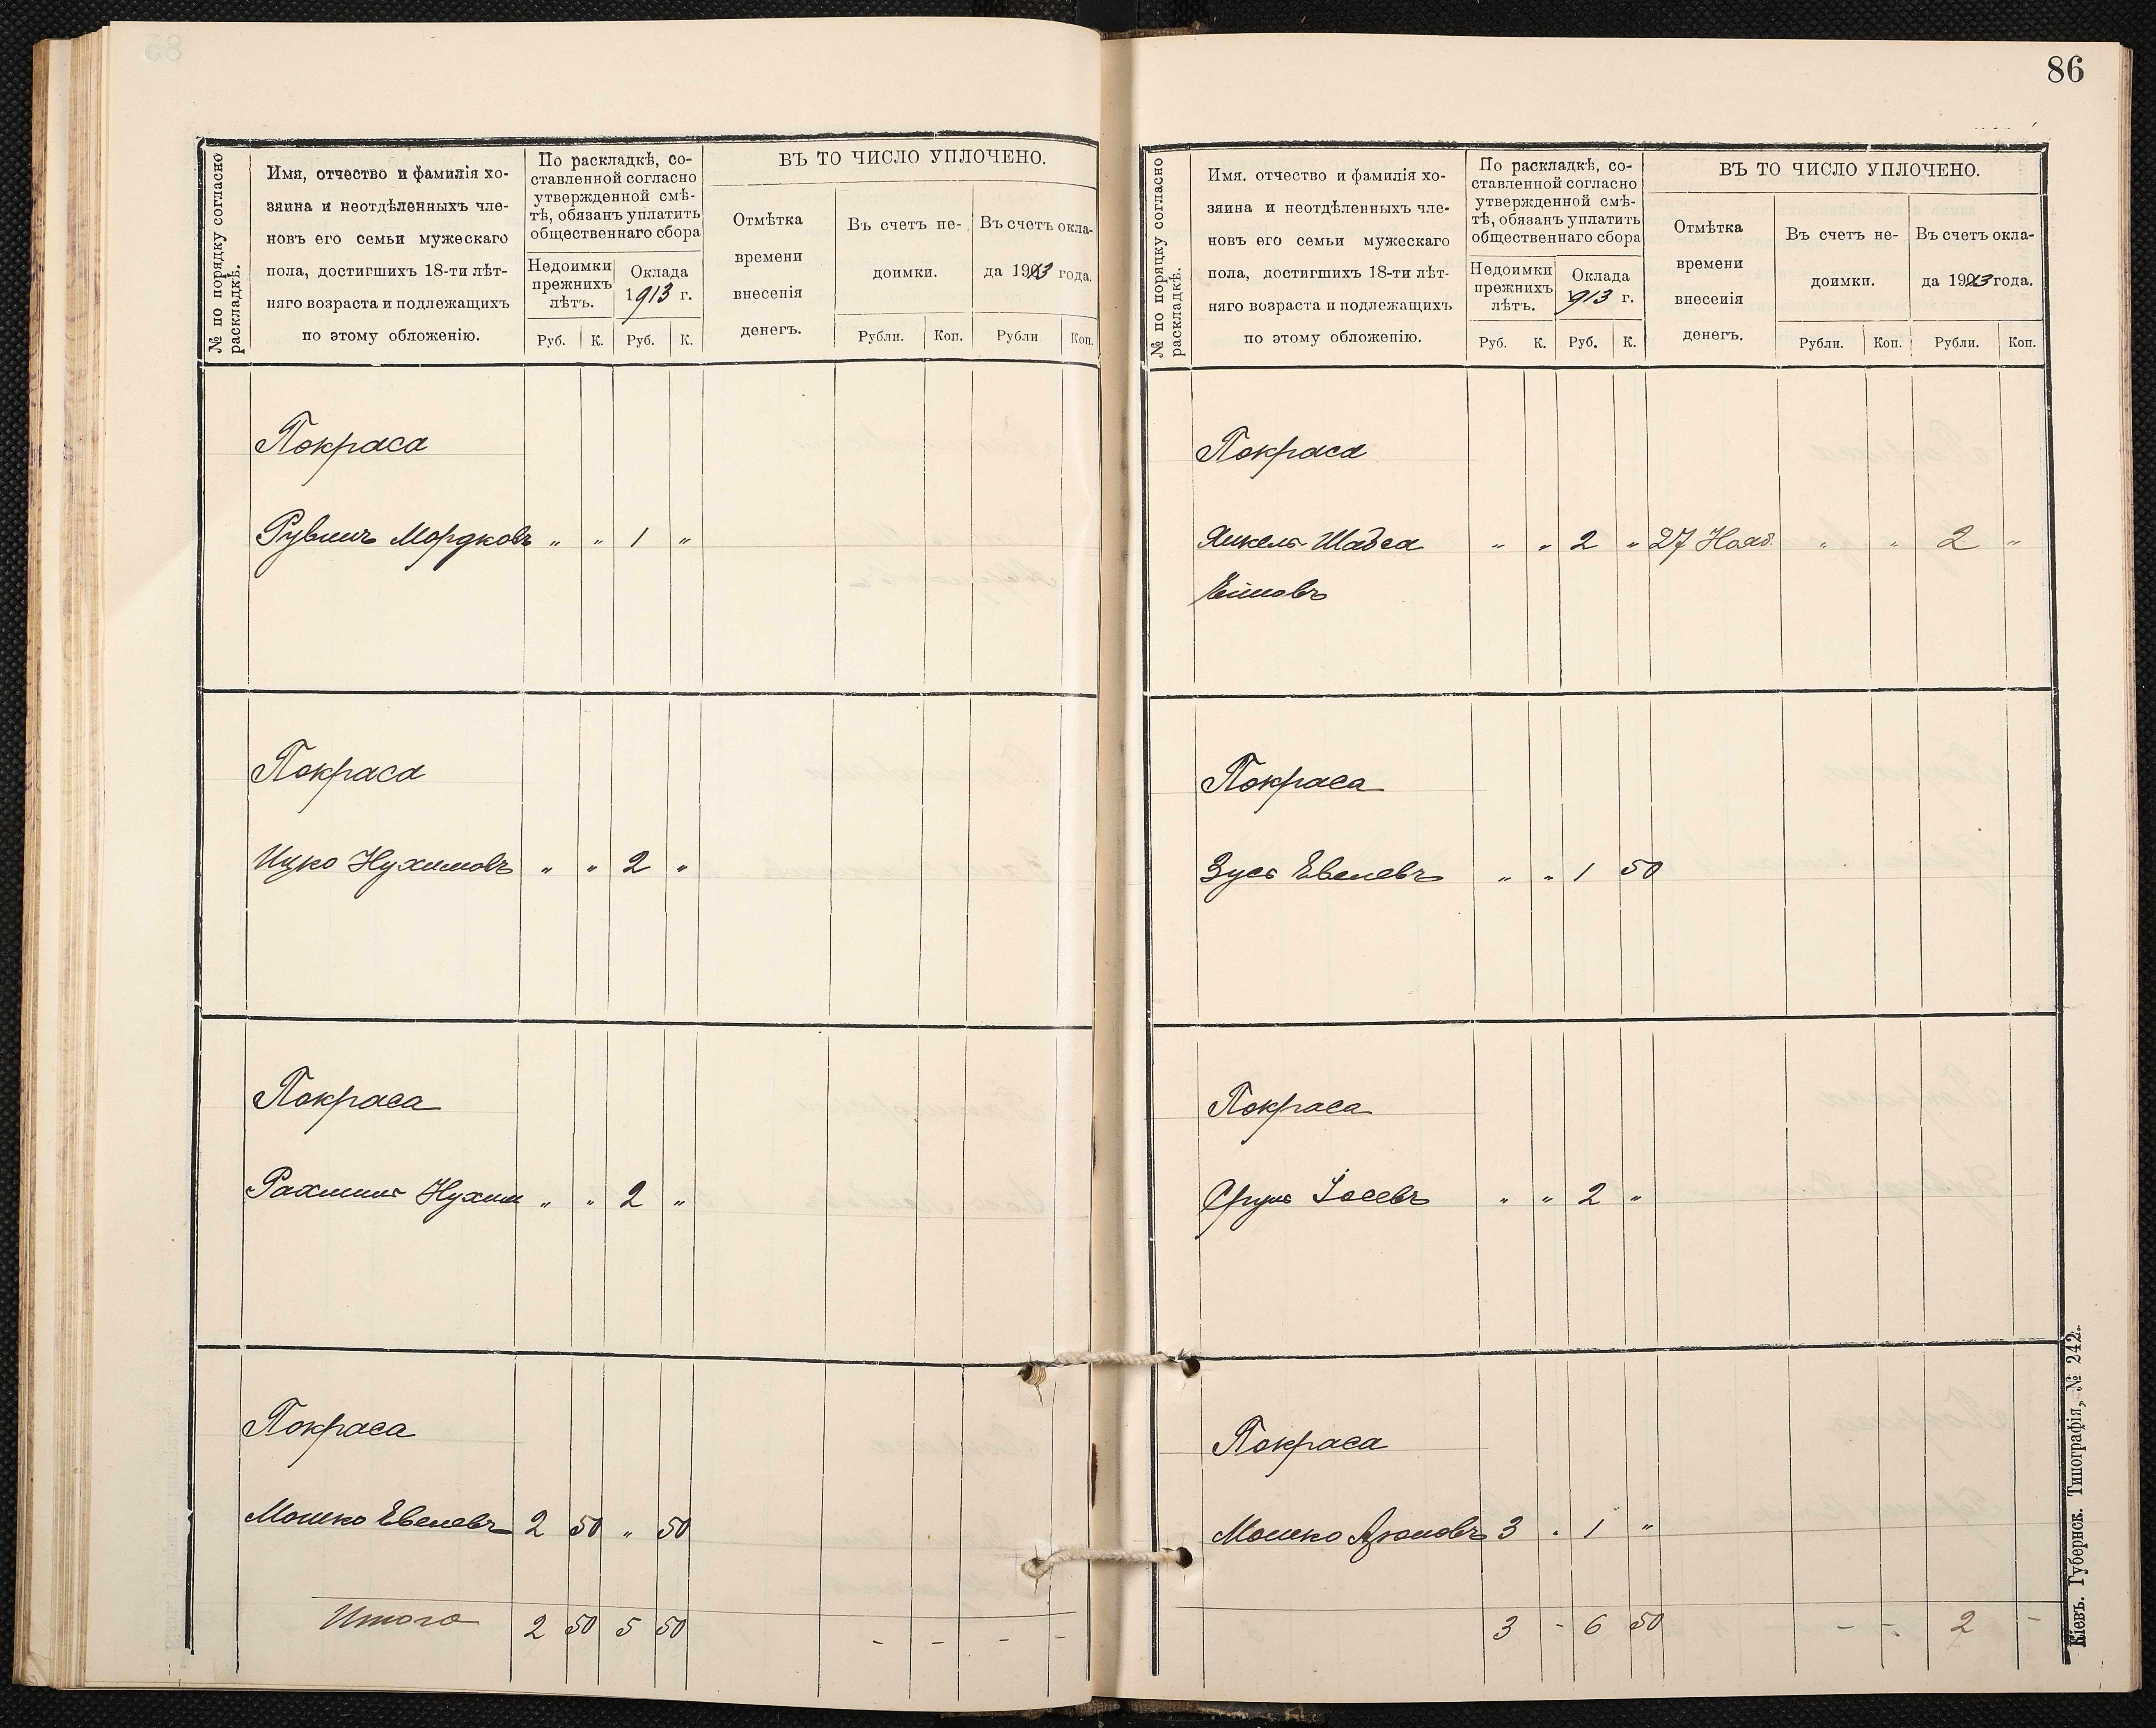 № по порядку согласно
раскладкѣ.
Имя, отчество и фамилія хо-
зяина и неотдѣленныхъ чле-
новъ его семьи мужескаго
пола, достигшихъ 18-ти лѣт-
няго возраста и подлежащихъ
по этому обложенію.
По раскладкѣ, со-
ставленной согласно
утвержденной смѣ-
тѣ, обязанъ уплатить
общественнаго сбора
Недоимки
прежнихъ
лѣтъ.
Оклада
1913 г.
Руб. К. Руб. К.
ВЪ ТО ЧИСЛО УПЛОЧЕНО.
Отмѣтка
времени
внесенія
денегъ.
Въ счетъ не-
доимки.
Въ счетъ окла-
да 1913 года.
Рубли. Коп. Рубли Коп.
Покраса
Рувинъ Мордковъ " " 1 "
Покраса
Ицко Нухимовъ " " 2 "
Покраса
Рахмиль Нухим " " 2 "
Покраса
Мошко Евелевъ 2 50 " 50
Итого 2 50 5 50 - - - -
86
№ по порядку согласно
раскладкѣ.
Имя, отчество и фамилія хо-
зяина и неотдѣленныхъ чле-
новъ его семьи мужескаго
пола, достигшихъ 18-ти лѣт-
няго возраста и подлежащихъ
по этому обложенію.
По раскладкѣ, со-
ставленной согласно
утвержденной смѣ-
тѣ, обязанъ уплатить
общественнаго сбора
Недоимки
прежнихъ
лѣтъ.
Оклада
913 г.
Руб. К. Руб. К.
ВЪ ТО ЧИСЛО УПЛОЧЕНО.
Отмѣтка
времени
внесенія
денегъ.
Въ счетъ не-
доимки.
Въ счетъ окла-
да 1913 года.
Рубли. Коп. Рубли. Коп.
Покраса
Янкель Шавса " " 2 " 27 Нояб. " " 2 "
Покраса
Зусь Евелевъ " " 1 50
Покраса
Сруль Іосевъ " " 2 "
Покраса
Мошко Ароновъ 3 " 1 "
3 - 6 50 - - 2 -
Кіевъ. Губернск. Типографія, № 242.